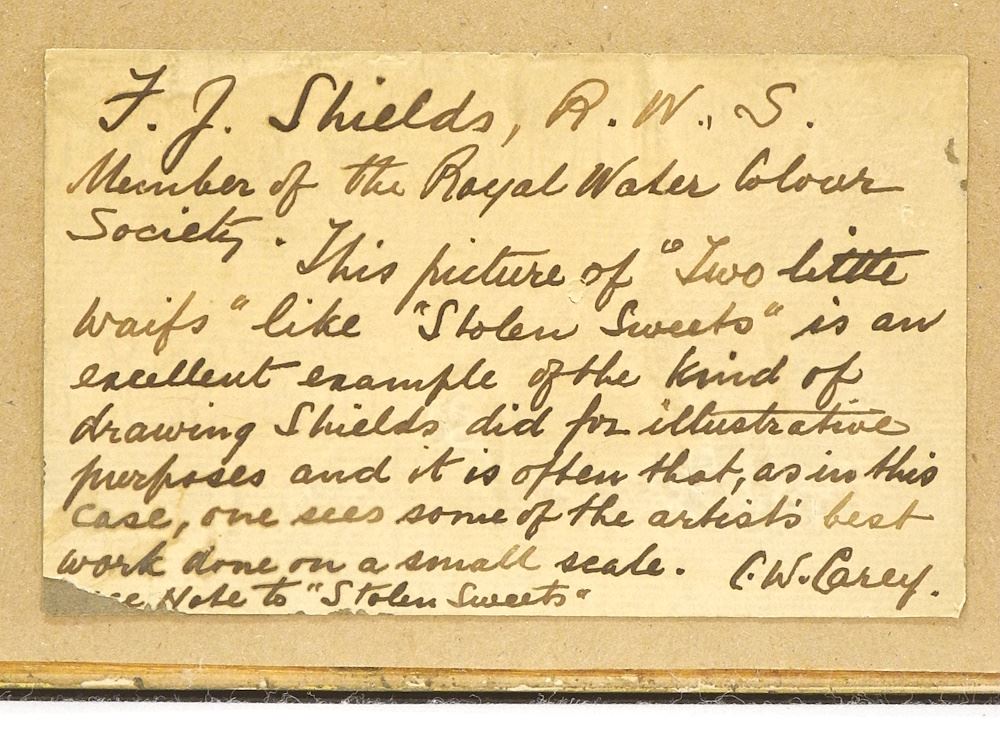 F. J. Shields, R. W., S.
Member of the Royal Water Colour
Society. This picture of "Two little
waifs" like "Stolen Sweets" is an
excellent example of the kind of
drawing Shields did for illustrative
purposes and it is often that, as in this
case, one sees some of the artist's best
work done on a small scale. C. W. Carey.
Note to "Stolen Sweets"